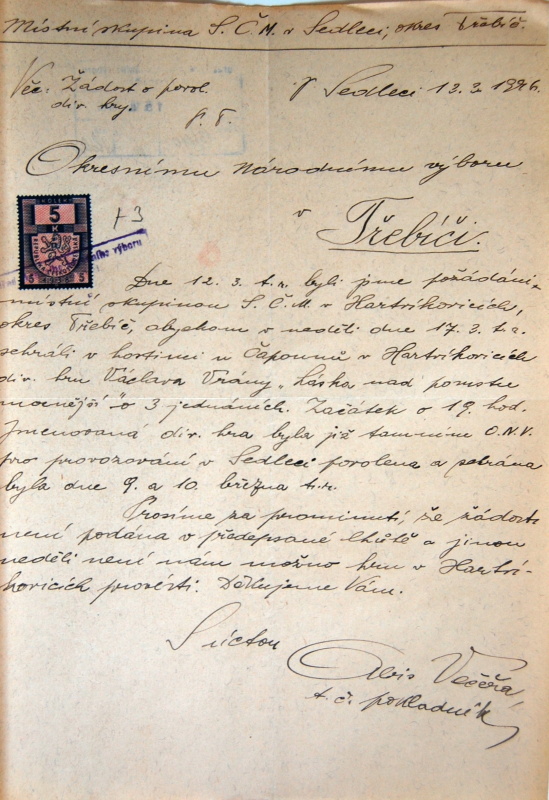 Místní skupina S. Č. M. v Sedleci, okres Třebíč.
Věc: Žádost o povol.
div. hry.
V Sedleci 13.3.1946.
P. T.
Okresnímu národnímu výboru
v
Třebíči.
KOLEK
5
K
5 5
ního výboru
Dne 12. 3. t. r. byli jsme požádáni
místní skupinou S. Č. M. v Hartvíkovicích,
okres Třebíč, abychom v neděli dne 17. 3. t. r.
sehráli v hostinci u Čapounů v Hartvíkovicích
div. hru Václava Vrány „Láska nad pomstu
mocnější" o 3 jednáních. Začátek o 19. hod.
Jmenovaná div. hra byla již tamním O.N.V.
pro provozování v Sedleci povolena a sehrána
byla dne 9. a 10. března t. r.
Prosíme za prominutí, že žádost
není podána v předepsané lhůtě a jinou
neděli není nám možno hru v Hartví-
kovicích provésti. Děkujeme Vám.
S úctou
Alois Večeřa,
t. č. pokladník